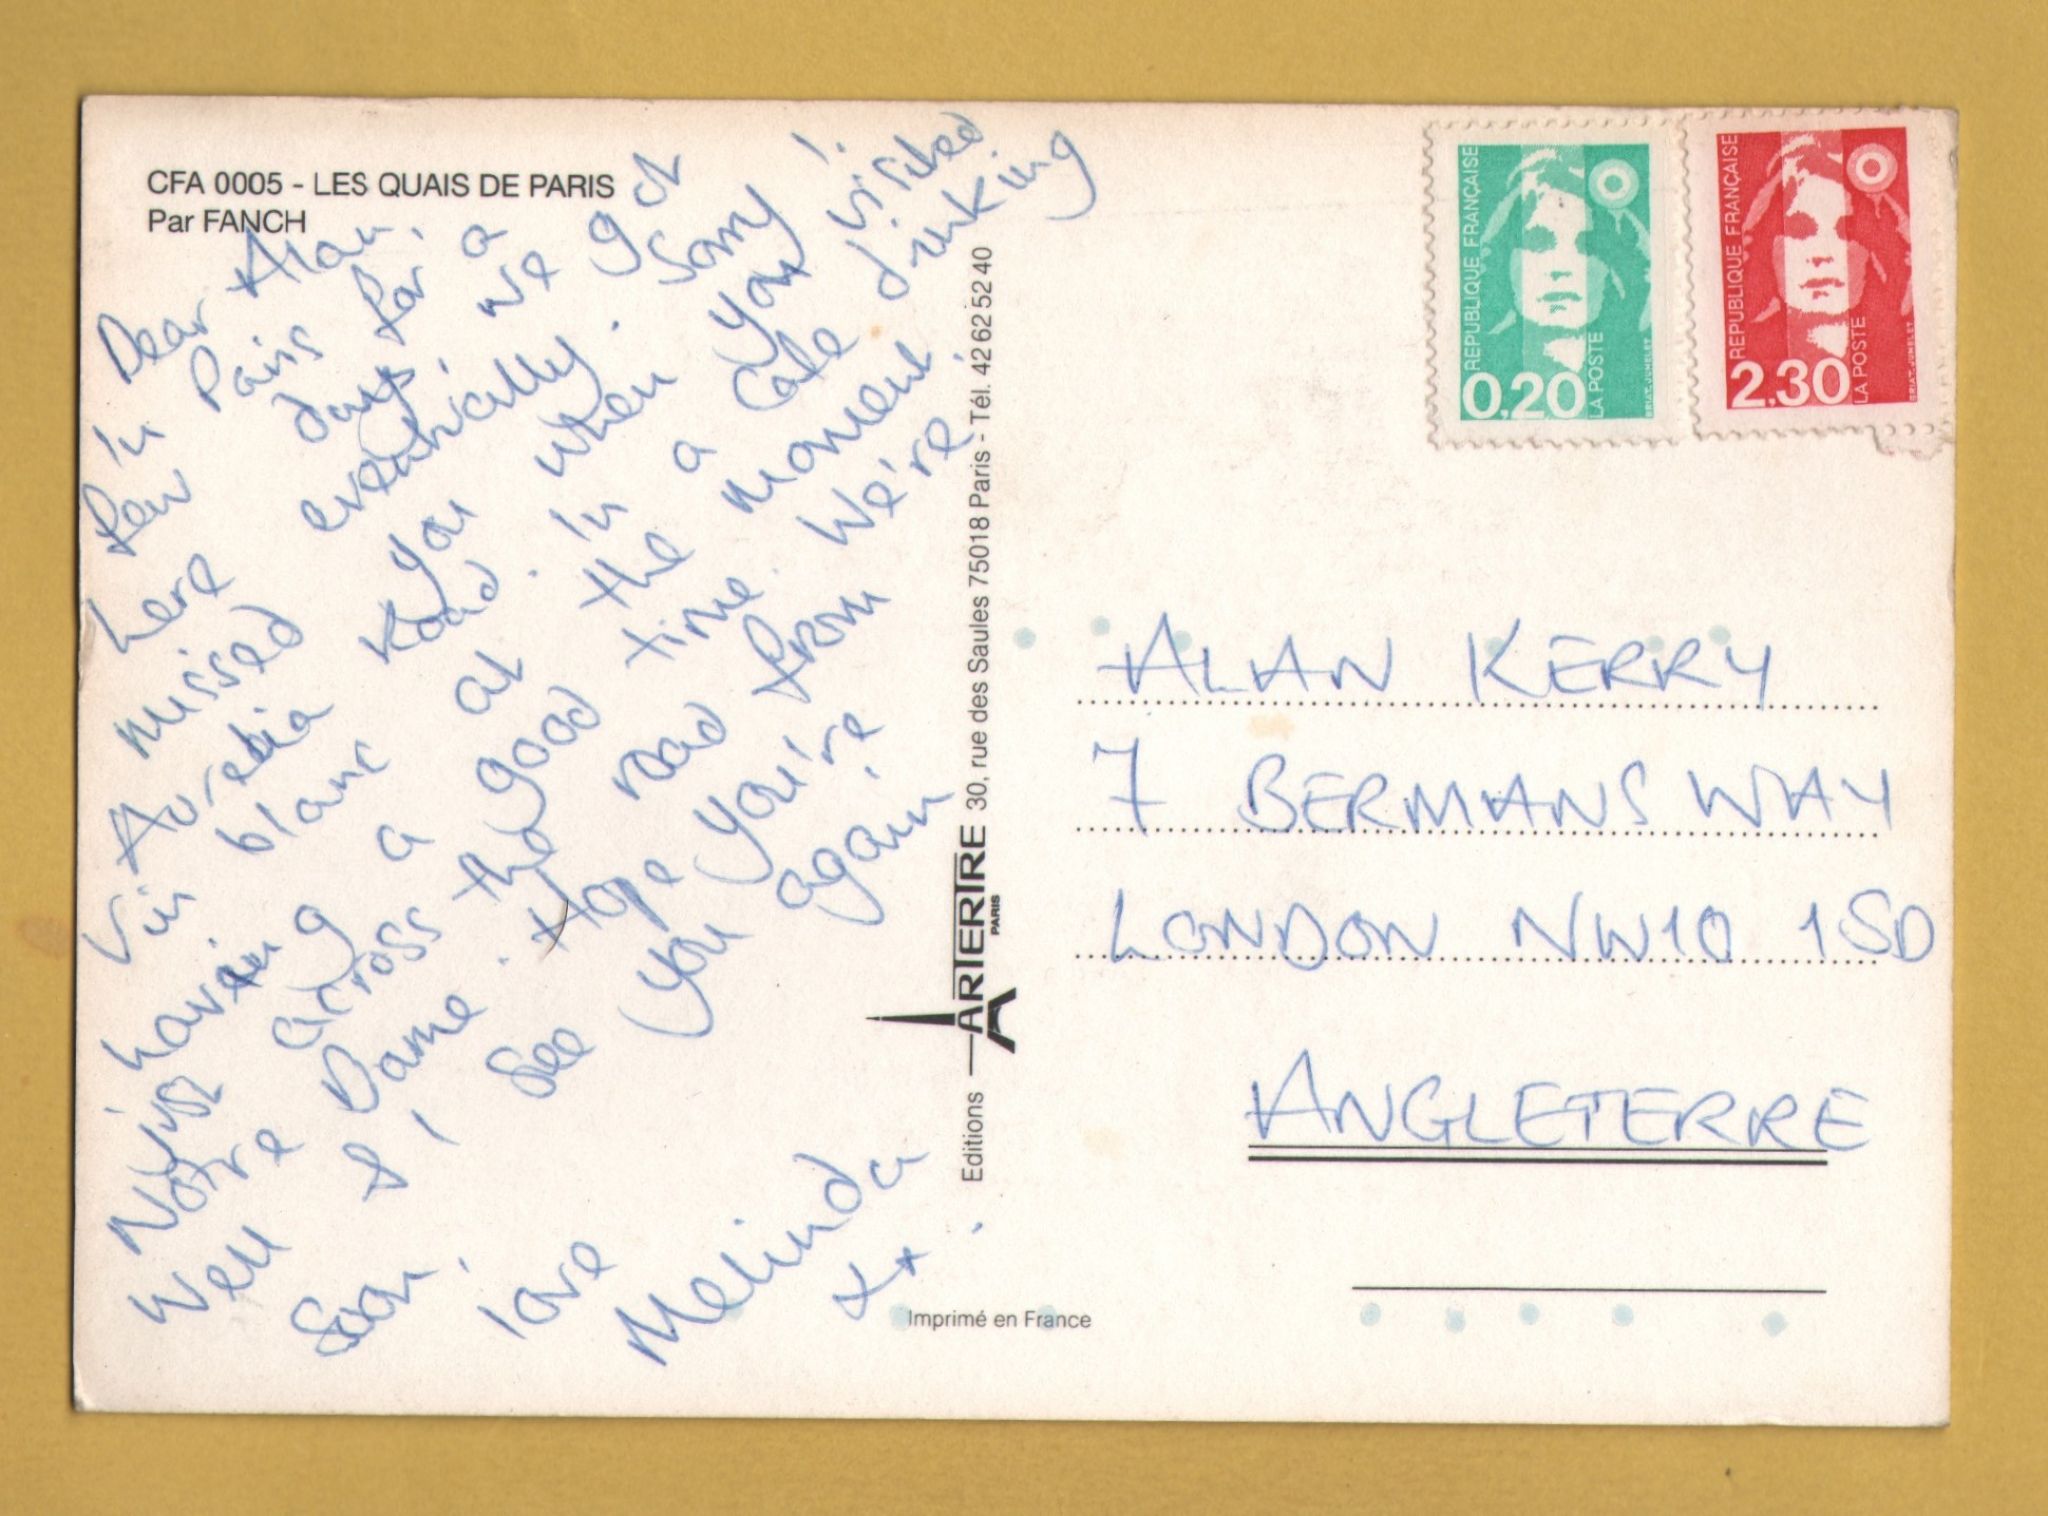 CFA 0005 - LES QUAIS DE PARIS
Par FANCH
Dear Alan,
in Paris for a
few days, we got
here eventually. Sorry I
missed you when you visited
Road. In a cafe drinking
vin blanc at the moment
having a good time. We're
just across the road from
Notre Dame. Hope you're
Well & I see you again
Soon,
love
Melinda
xx.
Editions ARTERTRE PARIS 30, rue des Saules 75018 Paris - Tél. 42 62 52 40
Imprimé en France
REPUBLIQUE FRANÇAISE
0,20
LA POSTE
BRIAT-JUMELET
REPUBLIQUE FRANÇAISE
2,30
LA POSTE
BRIAT-JUMELET
ALAN KERRY
7 BERMANS WAY
LONDON NW10 1SD
ANGLETERRE